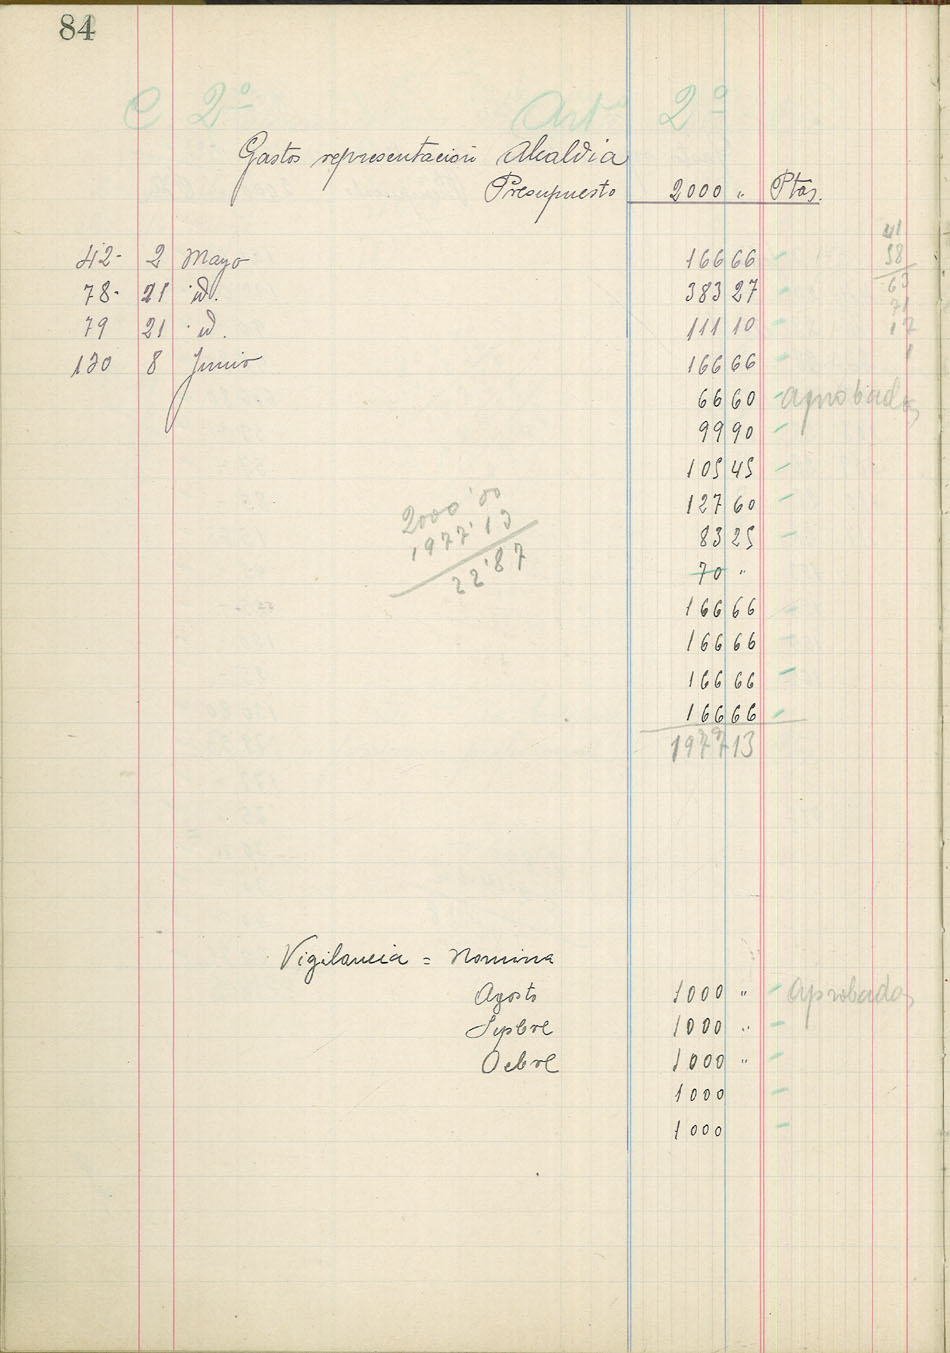 84
C 2º Artº 2º
Gastos representacion Alcaldia
Presupuesto 2000 " Ptas.
41
58
63
71
17
42- 2 Mayo 166 66
78- 21 id. 383 27
79 21 id. 111 10
130 8 Junio 166 66
66 60 aprobadas
99 90
105 45
127 60
83 25
2000'00
1977'13
22'87
70 "
166 66
166 66
166 66
166 66
1977 13
Vigilancia = Nomina
Agosto 1000 " aprobadas
Sepbre 1000 "
Ocbre 1000 "
1000
1000